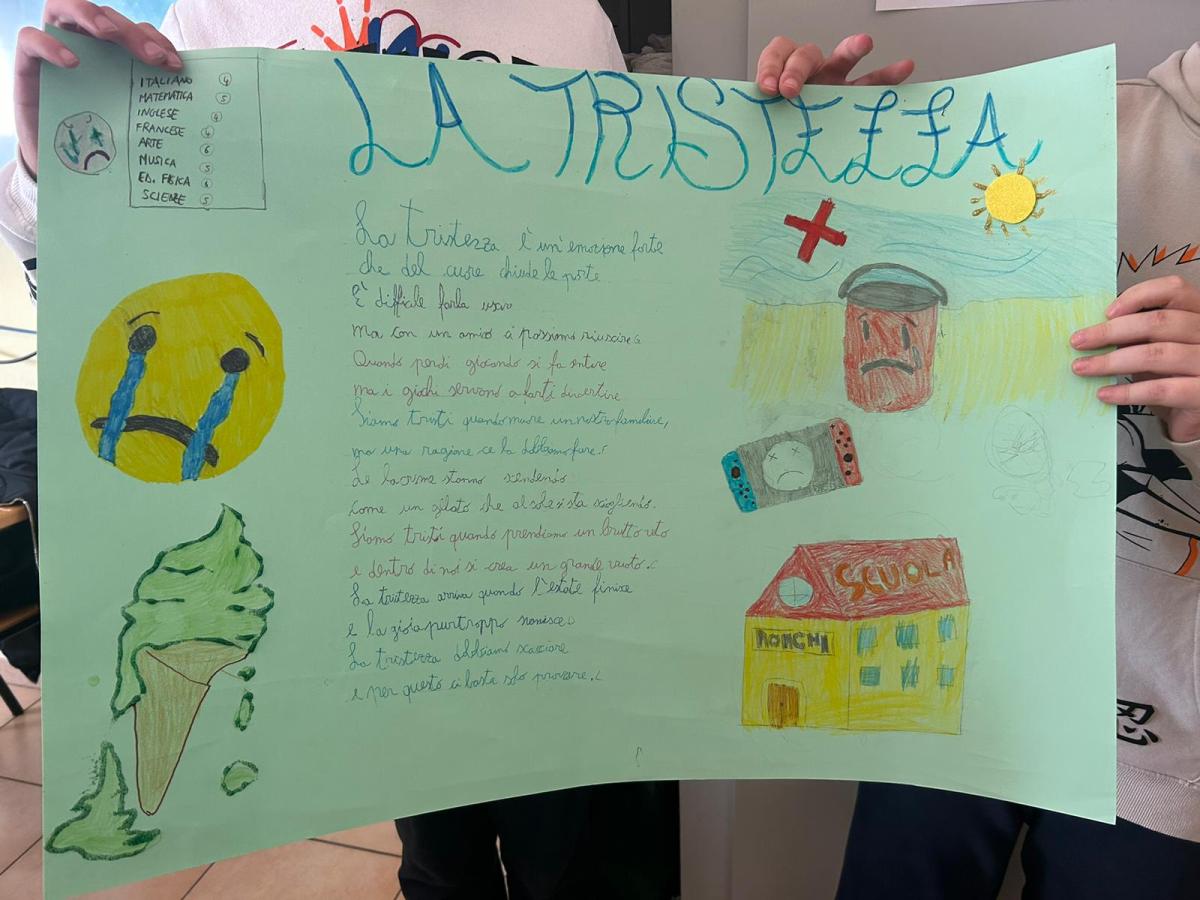 ITALIANO 4
MATEMATICA 5
INGLESE 4
FRANCESE 4
ARTE 6
MUSICA 5
ED. FISICA 6
SCIENZE 5
LA TRISTEZZA
La tristezza è un'emozione forte
che del cuore chiude le porte
È difficile farla usare
ma con un amico ci possiamo riuscire.
Quando perdi giocando si fa sentire
ma i giochi servono a farti divertire
Siamo tristi quando muore un nostro familiare,
ma una ragione ce la dobbiamo fare.
Le lacrime stanno scendendo
come un gelato che al sole si sta sciogliendo.
Siamo tristi quando prendiamo un brutto voto
e dentro di noi si crea un grande vuoto.
La tristezza arriva quando l'estate finisce
e la gioia purtroppo svanisce.
La tristezza dobbiamo scacciare
e per questo ci basta solo provare.
SCUOLA
RONCHI